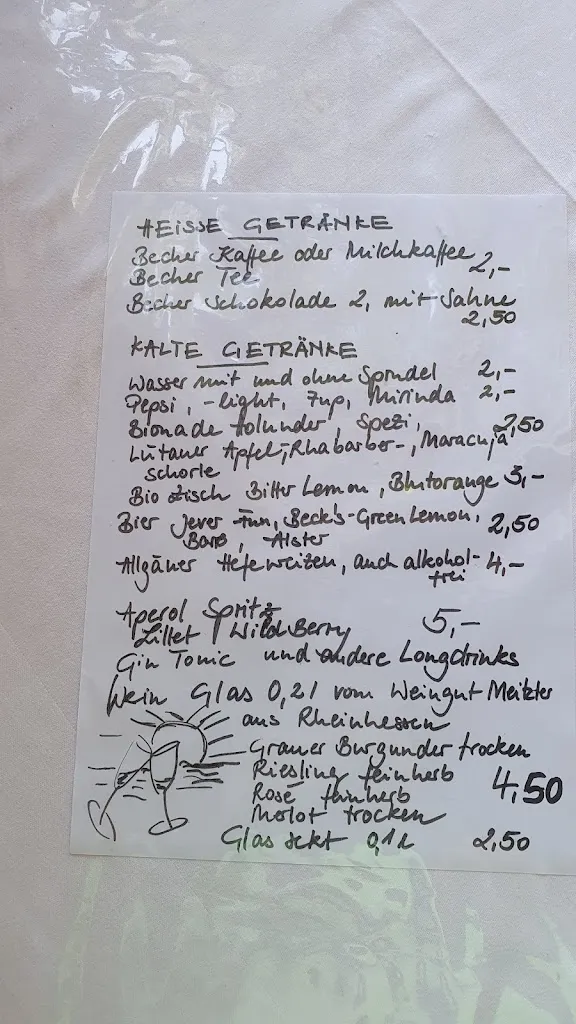 HEISSE GETRÄNKE
Becher Kaffee oder Milchkaffee 2,-
Becher Tee
Becher Schokolade 2, mit Sahne
2,50
KALTE GETRÄNKE
Wasser mit und ohne Sprudel 2,-
Pepsi, -light, 7up, Mirinda 2,-
Bionade Holunder, Spezi, 2,50
Lütauer Apfel-, Rhabarber-, Maracuja
schorle
Bio Zisch Bitter Lemon, Blutorange 3,-
Bier Jever Fun, Beck's-Green Lemon, 2,50
Alster
Allgäuer Hefeweizen, auch alkohol- 4,-
frei
Aperol Spritz
Lillet / Wild Berry 5,-
Gin Tonic und andere Longdrinks
Wein Glas 0,2l vom Weingut
aus Rheinhessen
Grauer Burgunder trocken
Riesling feinherb 4,50
Rosé feinherb
Merlot trocken
Glas Sekt 0,1l 2,50